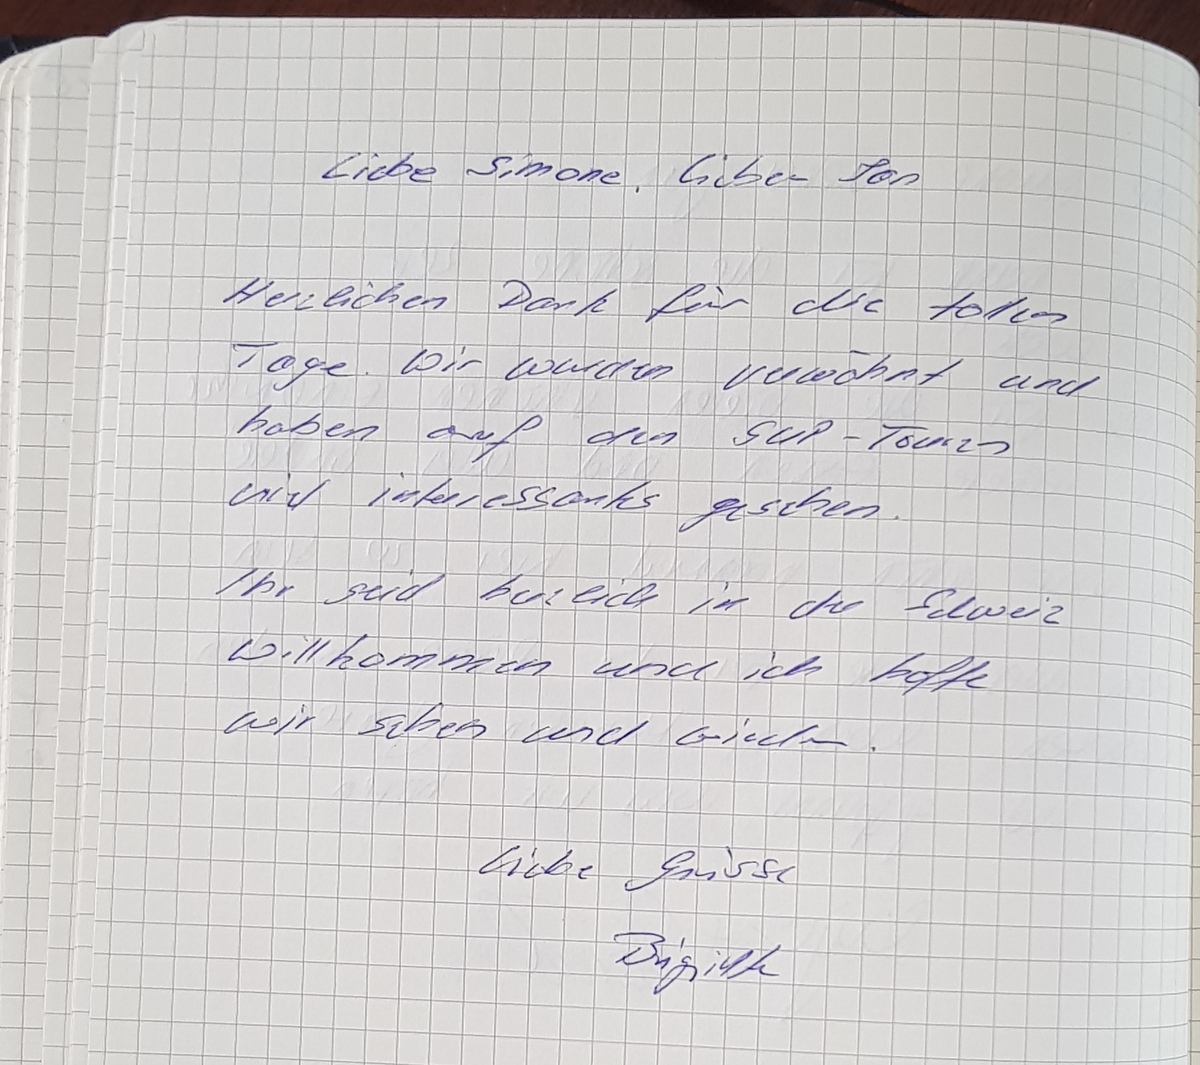 Liebe Simone, lieber Jan
Herzlichen Dank für die tollen
Tage. Wir wurden verwöhnt und
haben auf den SUP-Touren
viel interessantes gesehen.
Ihr seid herzlich in der Schweiz
willkommen und ich hoffe
wir sehen uns wieder.
Liebe Grüsse
Brigitte